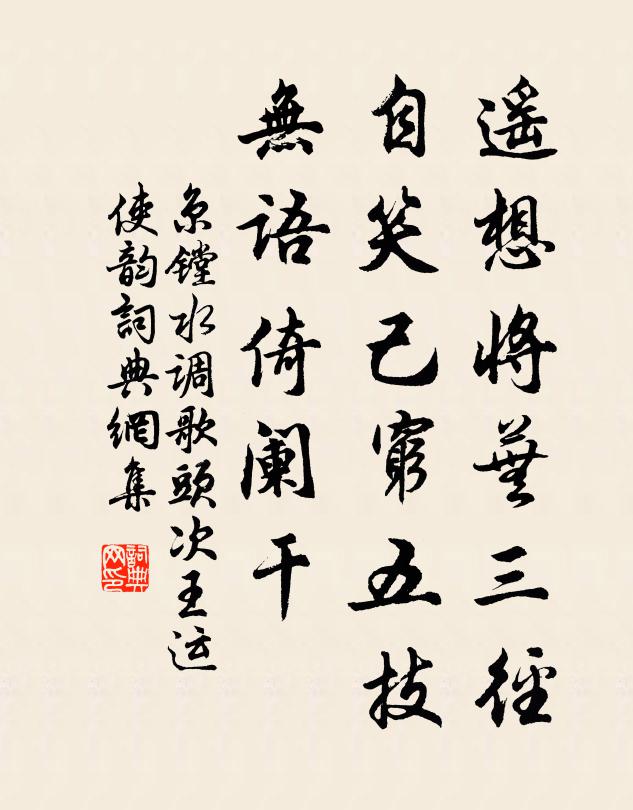 遥想將蕪三徑
自笑已窮五技
無語倚阑干
京鏜水调歌頭次王运
使韵詞典網集
詞典网印